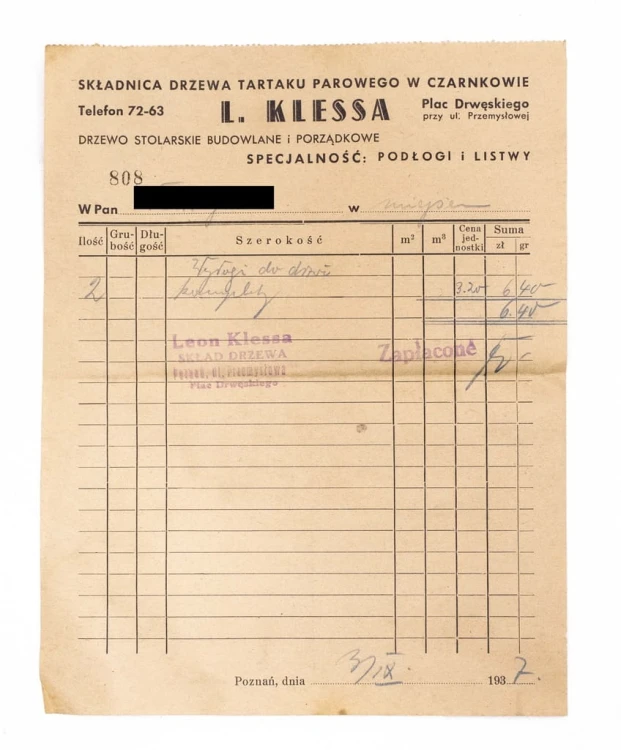 SKŁADNICA DRZEWA TARTAKU PAROWEGO W CZARNKOWIE
Telefon 72-63 L. KLESSA Plac Drwęskiego
przy ul. Przemysłowej
DRZEWO STOLARSKIE BUDOWLANE i PORZĄDKOWE
SPECJALNOŚĆ: PODŁOGI i LISTWY
808
WPan w miejscu
Ilość Grubość Długość Szerokość m² m³ Cena jednostki Suma
zł gr
do drzwi
2 komplety 3.20 6 40
6.40
Leon Klessa
SKŁAD DRZEWA
Poznań, ul. Przemysłowa
Plac Drwęskiego
Zapłacone
Poznań, dnia 3/IX. 1937.